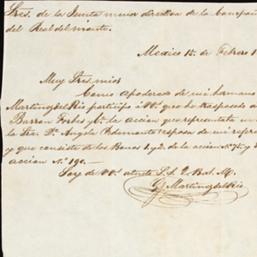 Sres. de la Junta menor directiva de la Compañia
del Real del monte.
Mexico 15 de Febrero 1
Muy Sres mios
Como apoderado de mi hermano
Martinez del Rio participo á VV. que ha traspasado
Barron Forbes y Ca. la accion que representaba
la Sra. Da. Angela esposa de mi
y que consiste de los Bonos 1 y 2 de la accion No. 75 y
accion No. 190.—
Soy de VV. atento S. S. Q. B. S. M.
G. Martinez del Rio